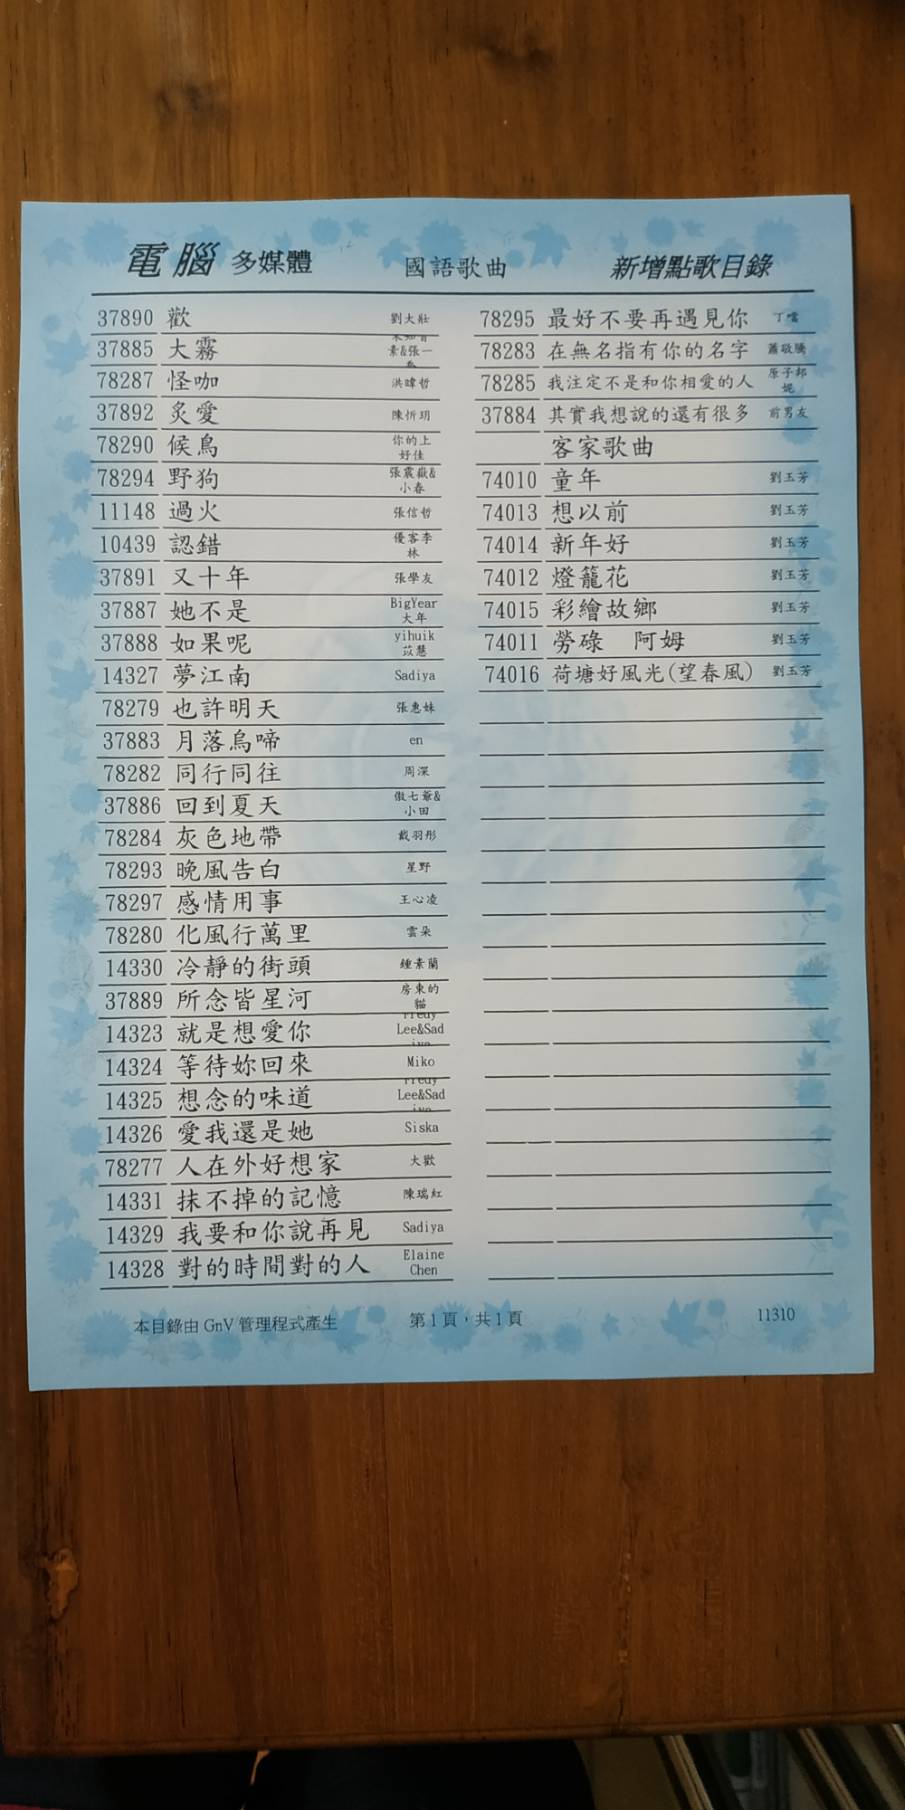 電腦 多媒體 國語歌曲 新增點歌目錄
37890 歡 劉大壯
37885 大霧 素&張一
78287 怪咖 洪暐哲
37892 炙愛 陳忻玥
78290 候鳥 你的上好佳
78294 野狗 張震嶽&小春
11148 過火 張信哲
10439 認錯 優客李林
37891 又十年 張學友
37887 她不是 BigYear大年
37888 如果呢 yihuik苡慧
14327 夢江南 Sadiya
78279 也許明天 張惠妹
37883 月落烏啼 en
78282 同行同往 周深
37886 回到夏天 傲七爺&小田
78284 灰色地帶 戴羽彤
78293 晚風告白 星野
78297 感情用事 王心凌
78280 化風行萬里 雲朵
14330 冷靜的街頭 鍾素蘭
37889 所念皆星河 房東的貓
14323 就是想愛你 Lee&Sad
14324 等待妳回來 Miko
14325 想念的味道 Lee&Sad
14326 愛我還是她 Siska
78277 人在外好想家 大歡
14331 抹不掉的記憶 陳瑞紅
14329 我要和你說再見 Sadiya
14328 對的時間對的人 Elaine Chen
78295 最好不要再遇見你 丁噹
78283 在無名指有你的名字 蕭敬騰
78285 我注定不是和你相愛的人 原子邦妮
37884 其實我想說的還有很多 前男友
客家歌曲
74010 童年 劉玉芳
74013 想以前 劉玉芳
74014 新年好 劉玉芳
74012 燈籠花 劉玉芳
74015 彩繪故鄉 劉玉芳
74011 勞碌 阿姆 劉玉芳
74016 荷塘好風光(望春風) 劉玉芳
本目錄由 GnV 管理程式產生 第1頁，共1頁 11310